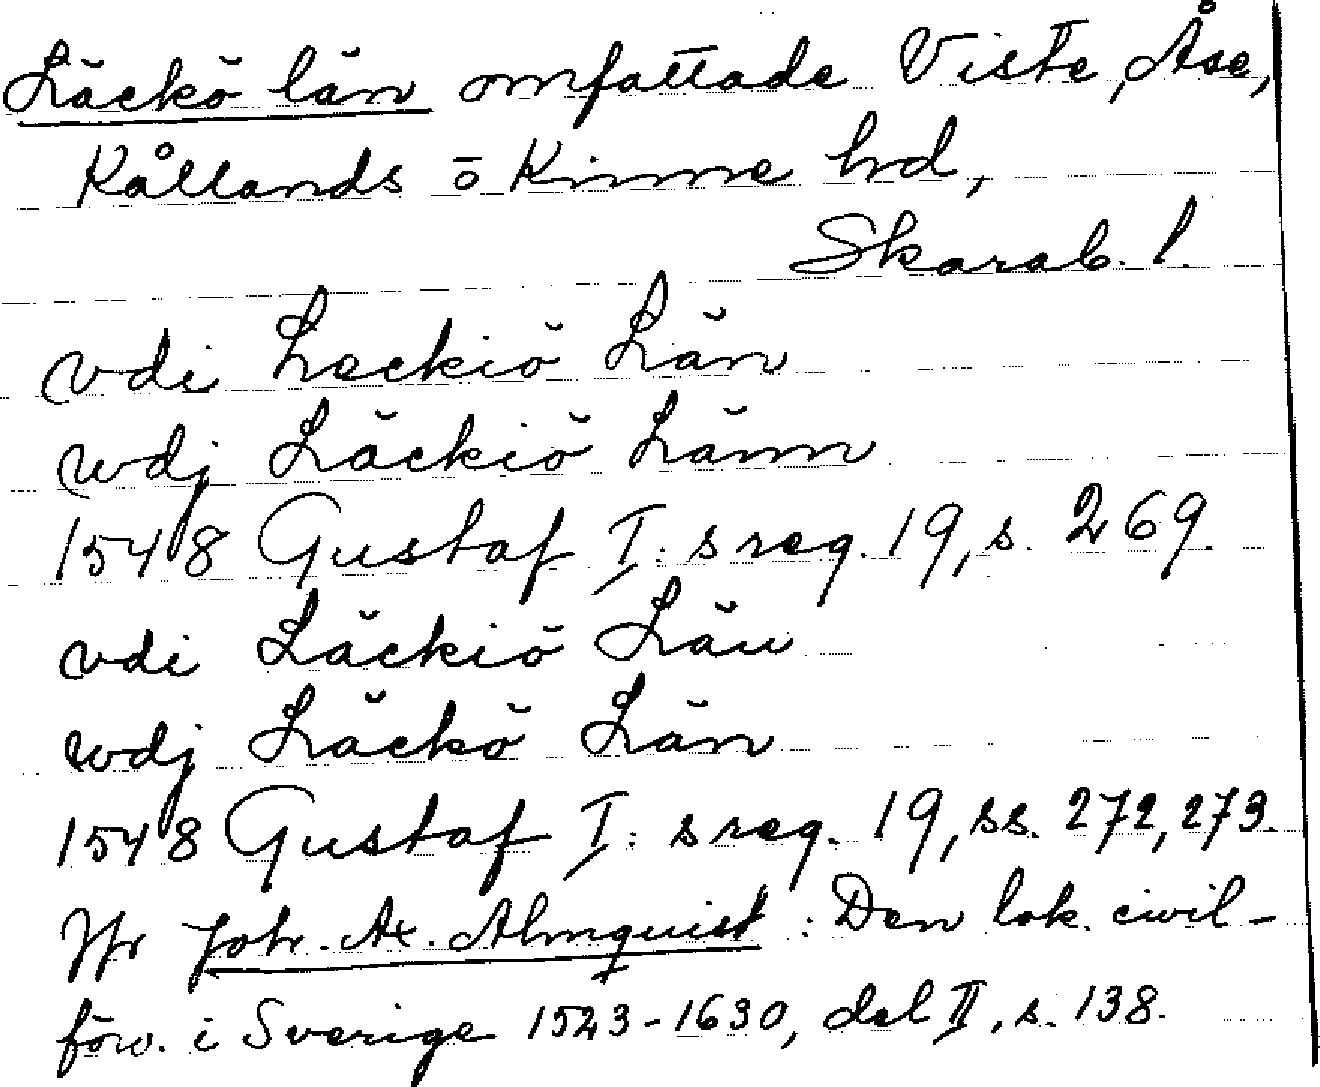 Läckö län omfattade Viste, Åse,
Kållands o Kinne hrd,
Skarab. l.
vdi Leckiö Län
wdj Läckiö Länn
1548 Gustaf I: s reg. 19, s. 269.
vdi Läckiö Län
wdj Läckö Län
1548 Gustaf I: s reg. 19, ss. 272, 273.
Jfr Joh. Ax. Almquist: Den lok. civil-
förv. i Sverige 1523-1630, del II, s. 138.